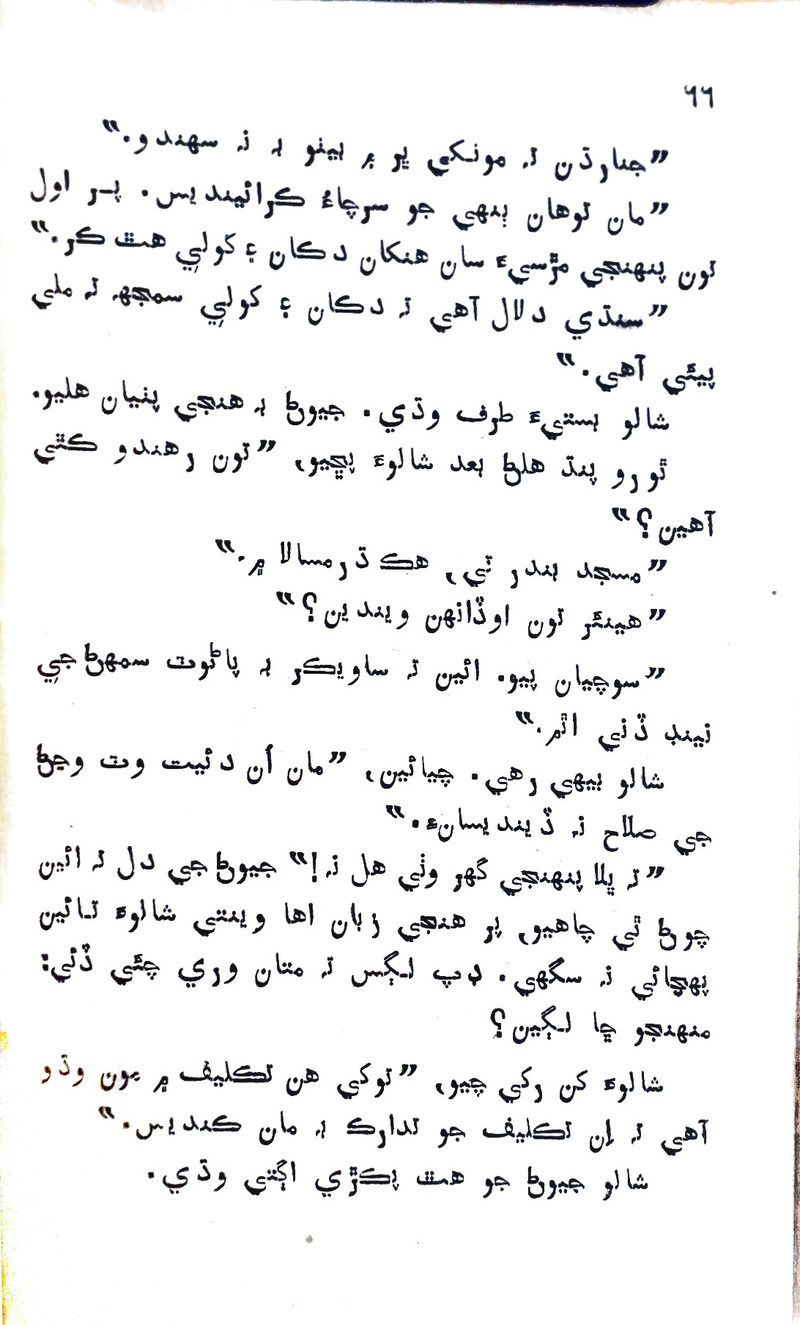 ٦٦
”جنارڌن تہ مونکي ڀر ۾ بيٺو بہ نہ سهندو.“
”مان توهان ٻنهي جو سرچاءُ ڪرائينديس. پر اول
تون پنهنجي مڙسيءَ سان هنکان دڪان ۽ کولي هٿ ڪر.“
”سنڌي دلال آهي تہ دڪان ۽ کولي سمجهہ تہ ملي
پيئي آهي.“
شالو بستيءَ طرف وڌي. جيوڻ بہ هنجي پٺيان هليو.
ٿورو پنڌ هلڻ بعد شالوءَ پڇيو, ”تون رهندو ڪٿي
آهين؟“
”مسجد بندر تي, هڪ ڌرمسالا ۾.“
”هينئر تون اوڏانهن ويندين؟“
”سوچيان پيو. ائين تہ ساويڪر بہ پاڻوٽ سمهڻ جي
نينڊ ڏني اٿم.“
شالو بيهي رهي. چيائين, ”مان اُن دئيت وٽ وڃڻ
جي صلاح نہ ڏينديسانءِ.“
”تہ ڀلا پنهنجي گهر وٺي هل نہ!“ جيوڻ جي دل تہ ائين
چوڻ ٿي چاهيو, پر هنجي زبان اها وينتي شالوءَ تائين
پهچائي نہ سگهي. ڊپ لڳس تہ متان وري چئي ڏئي:
منهنجو ڇا لڳين؟
شالوءَ کن رکي چيو, ”توکي هن تڪليف ۾ مون وڌو
آهي تہ اِن تڪليف جو تدارڪ بہ مان ڪنديس.“
شالو جيوڻ جو هٿ پڪڙي اڳتي وڌي.